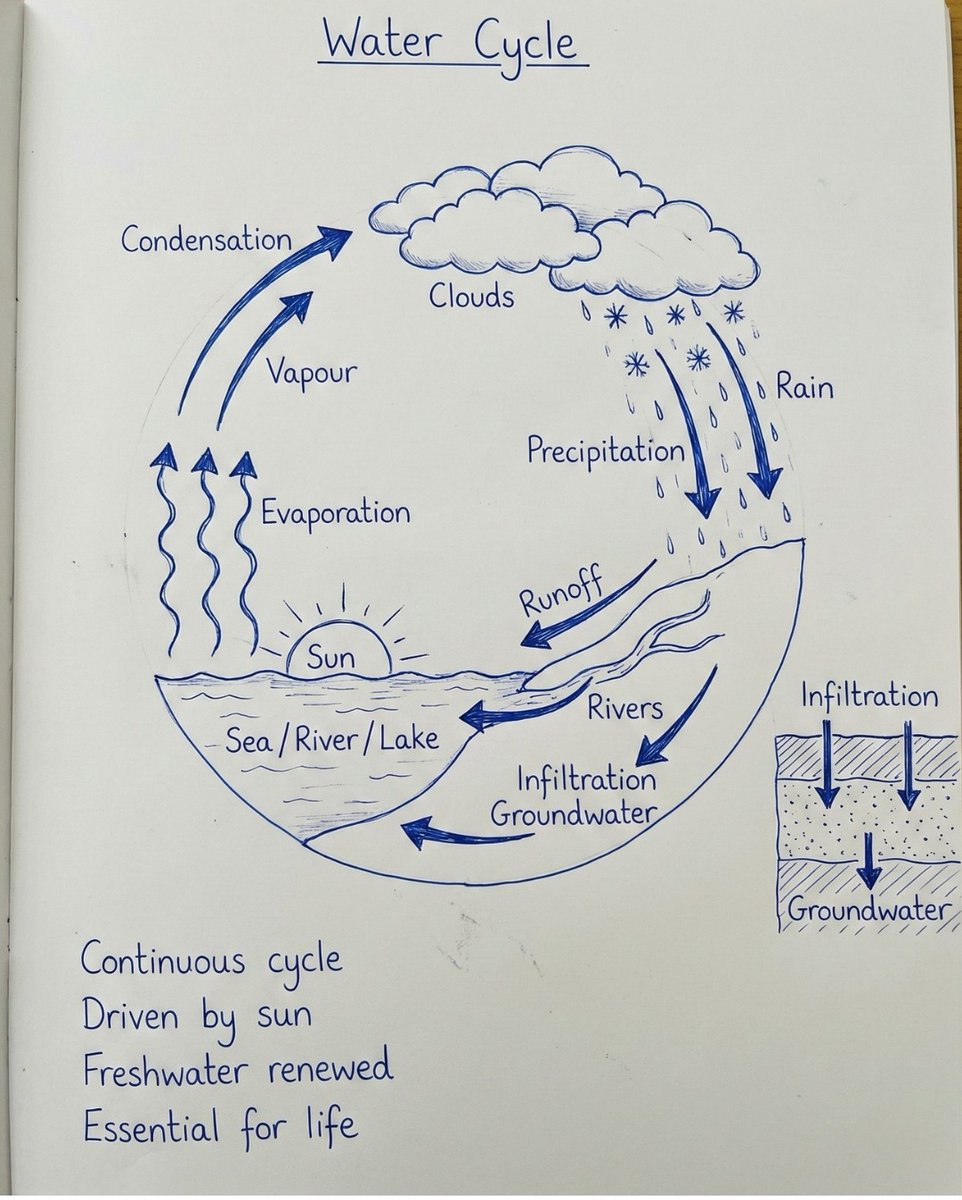 Water Cycle
Condensation
Clouds
Vapour
Rain
Precipitation
Evaporation
Runoff
Sun
Sea/River/Lake
Rivers
Infiltration
Groundwater
Infiltration
Groundwater
Continuous cycle
Driven by sun
Freshwater renewed
Essential for life